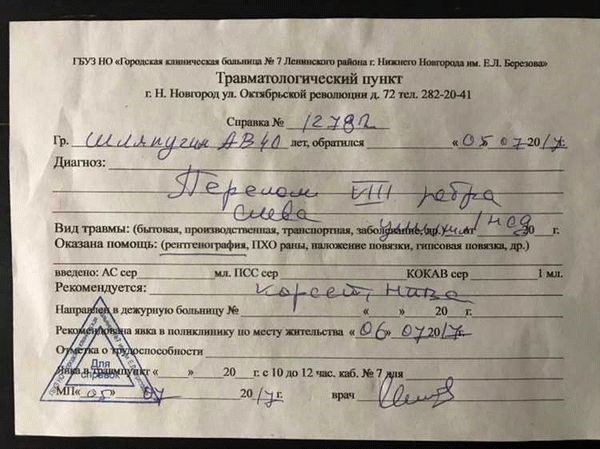 ГБУЗ НО «Городская клиническая больница № 7 Ленинского района г. Нижнего Новгорода им. Е.Л. Березова»
Травматологический пункт
г. Н. Новгород ул. Октябрьской революции д. 72 тел. 282-20-41
Справка № 12782
Гр. Шляпугин АВ 40 лет, обратился «05 07 2017г.
Диагноз:
Перелом VIII ребра
слева
Вид травмы: (бытовая, производственная, транспортная, заболевание, др.) 20 г.
Оказана помощь: (рентгенография, ПХО раны, наложение повязки, гипсовая повязка, др.)
введено: АС сер мл. ПСС сер КОКАВ сер 1 мл.
Рекомендуется: корсет,
Направлен в дежурную больницу № « » 20 г.
Рекомендована явка в поликлинику по месту жительства «06» 07 2017г.
Отметка о трудоспособности
Явка в травмпункт « » 20 г. с 10 до 12 час. каб. № 7 для
МП« 05 » 07 2017г. врач
Для
справок